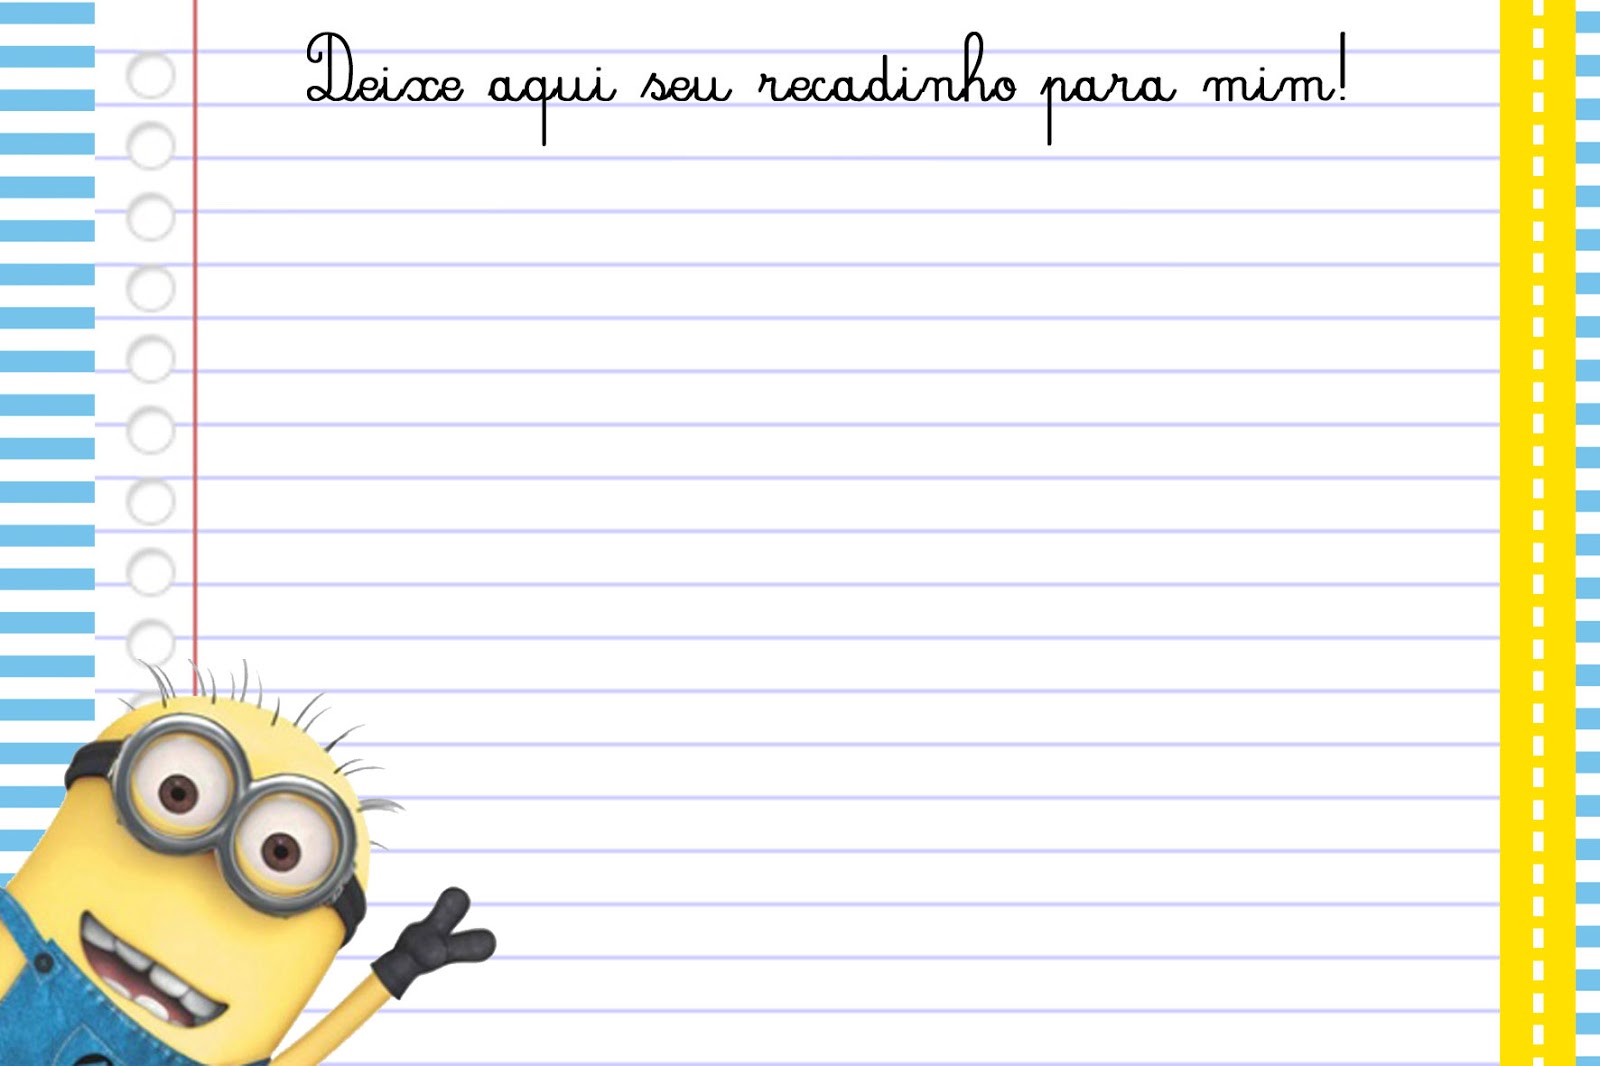 Deixe aqui seu recadinho para mim!